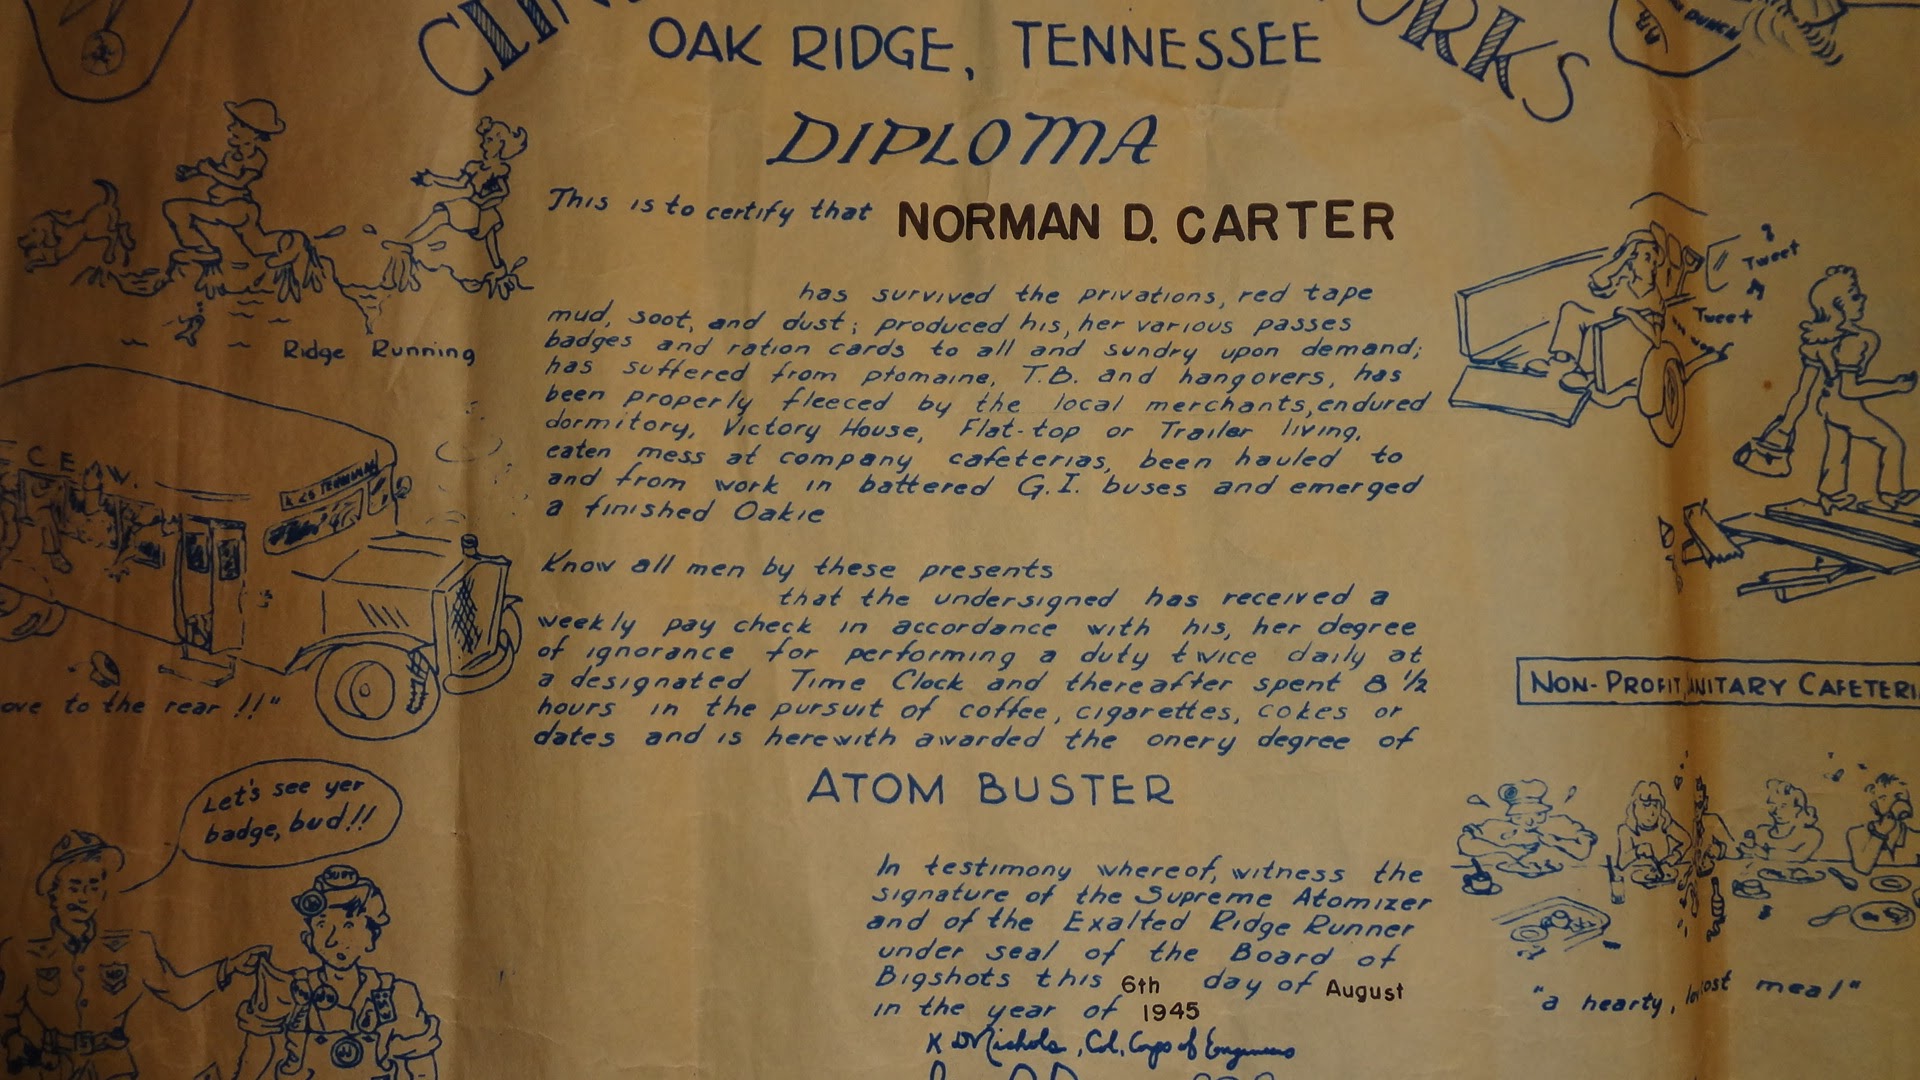 OAK RIDGE, TENNESSEE
DIPLOMA
This is to certify that NORMAN D. CARTER
has survived the privations, red tape
mud, soot, and dust; produced his, her various passes
badges and ration cards to all and sundry upon demand;
has suffered from ptomaine, T.B. and hangovers, has
been properly fleeced by the local merchants, endured
dormitory, Victory House, Flat-top or Trailer living,
eaten mess at company cafeterias, been hauled to
and from work in battered G.I. buses and emerged
a finished Oakie
Know all men by these presents
that the undersigned has received a
weekly pay check in accordance with his, her degree
of ignorance for performing a duty twice daily at
a designated Time Clock and thereafter spent 8 1/2
hours in the pursuit of coffee, cigarettes, cokes or
dates and is herewith awarded the onery degree of
ATOM BUSTER
In testimony whereof, witness the
signature of the Supreme Atomizer
and of the Exalted Ridge Runner
under seal of the Board of
Bigshots this 6th day of August
in the year of 1945
K D Nichols, Col, Corps of Engineers
Ridge Running
C.E.W.
ove to the rear !!"
Let's see yer
badge, bud!!
Tweet
Tweet
woof
NON-PROFIT ANITARY CAFETERI
"a hearty, low cost meal"